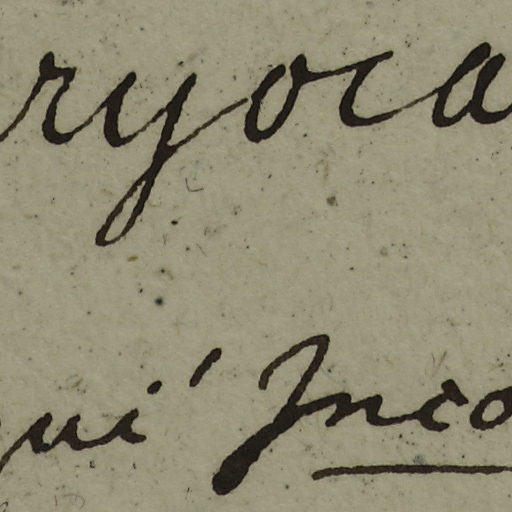 ryoca
qui Inco